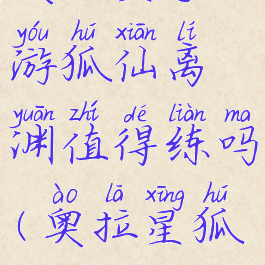 yóu hú xiān lí
游狐仙离
yuān zhí dé liàn ma
渊值得练吗
ào lā xīng hú
(奥拉星狐